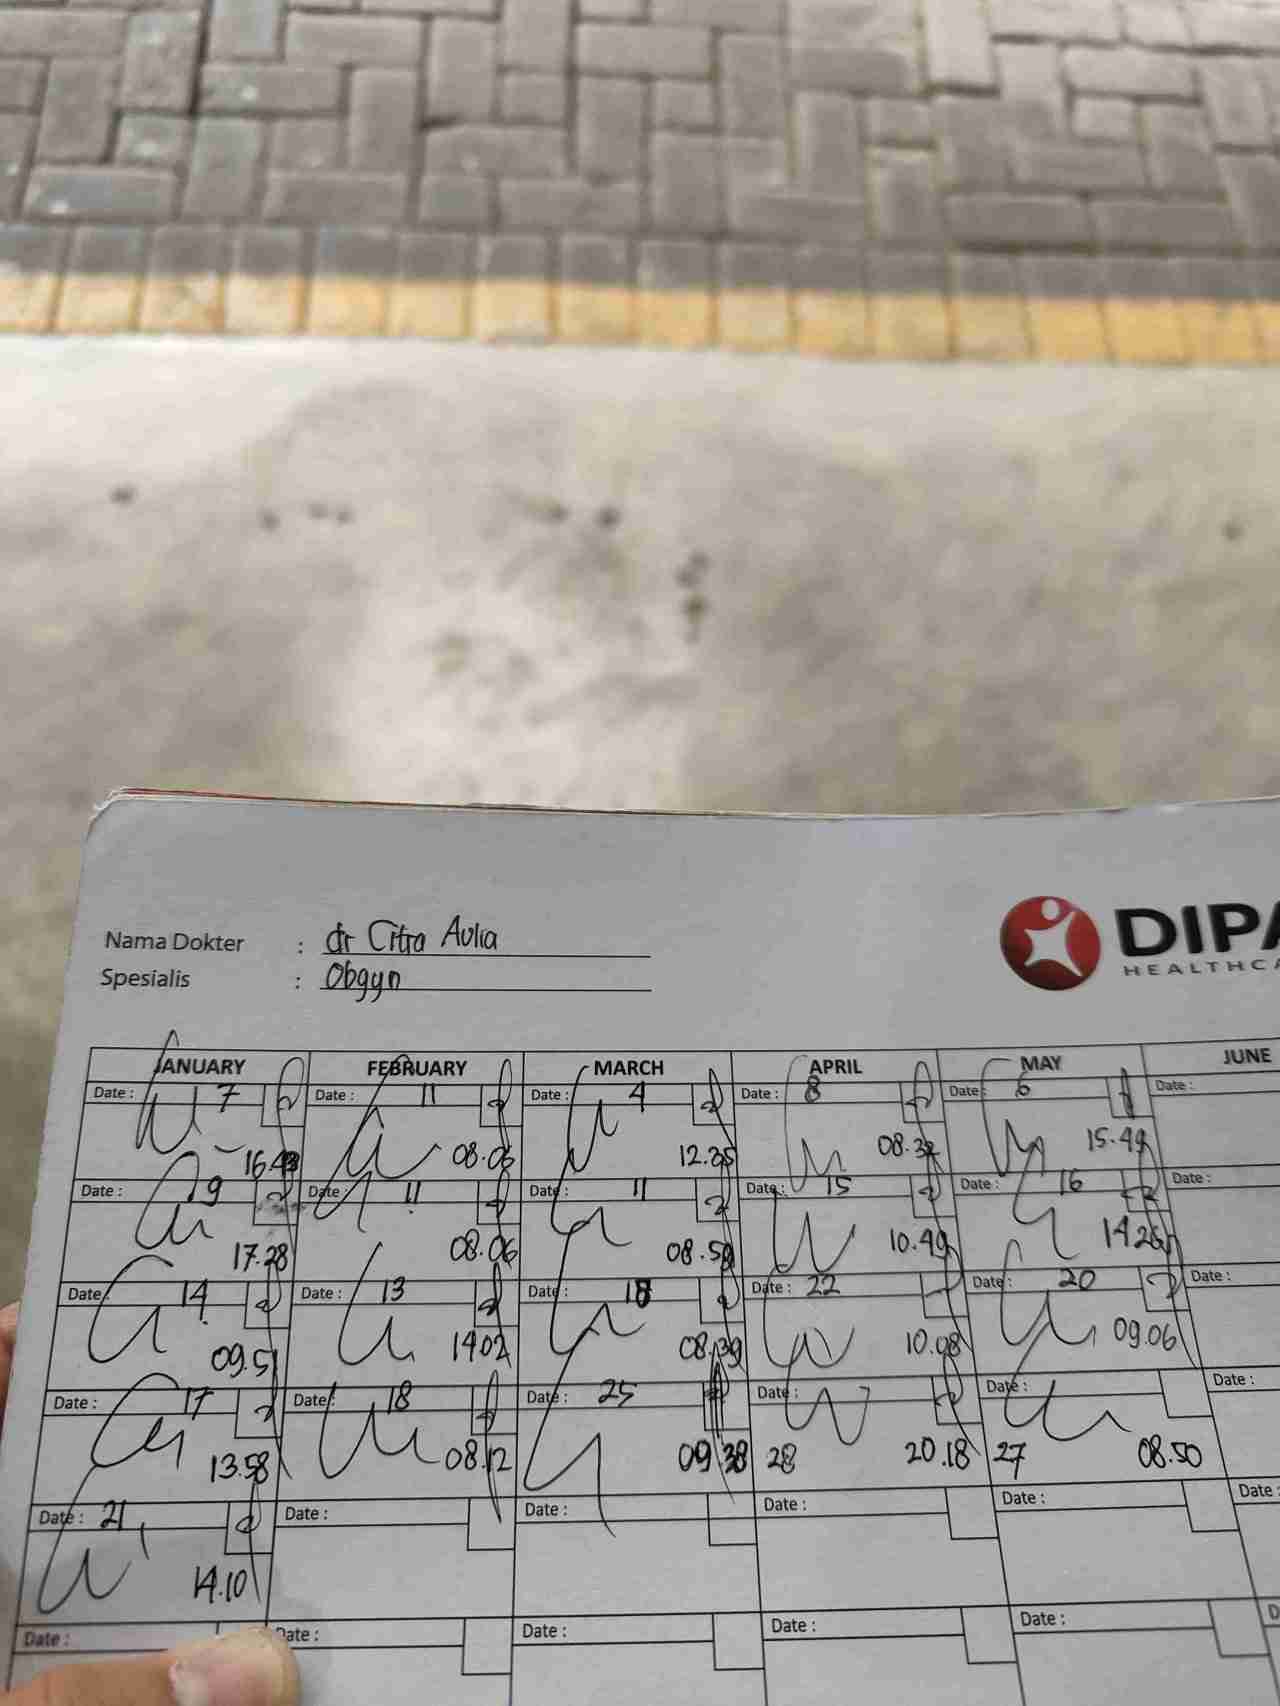 Nama Dokter : dr Citra Aulia
Spesialis : Obgyn
DIPA
HEALTHCA
JANUARY FEBRUARY MARCH APRIL MAY JUNE
Date : 7 Date : 11 Date : 4 Date : 8 Date : 6 Date :
16.43 08.06 12.35 08.32 15.49
Date : 9 Date : 11 Date : 11 Date : 15 Date : 16 Date :
17.28 08.06 08.59 10.49 14.26
Date : 14 Date : 13 Date : 18 Date : 22 Date : 20 Date :
09.51 14.02 08.39 10.08 09.06
Date : 17 Date : 18 Date : 25 Date : Date : Date :
13.58 08.12 09.38 28 20.18 27 08.50
Date : 21 Date : Date : Date : Date : Date :
14.10
Date : Date : Date : Date : Date : D